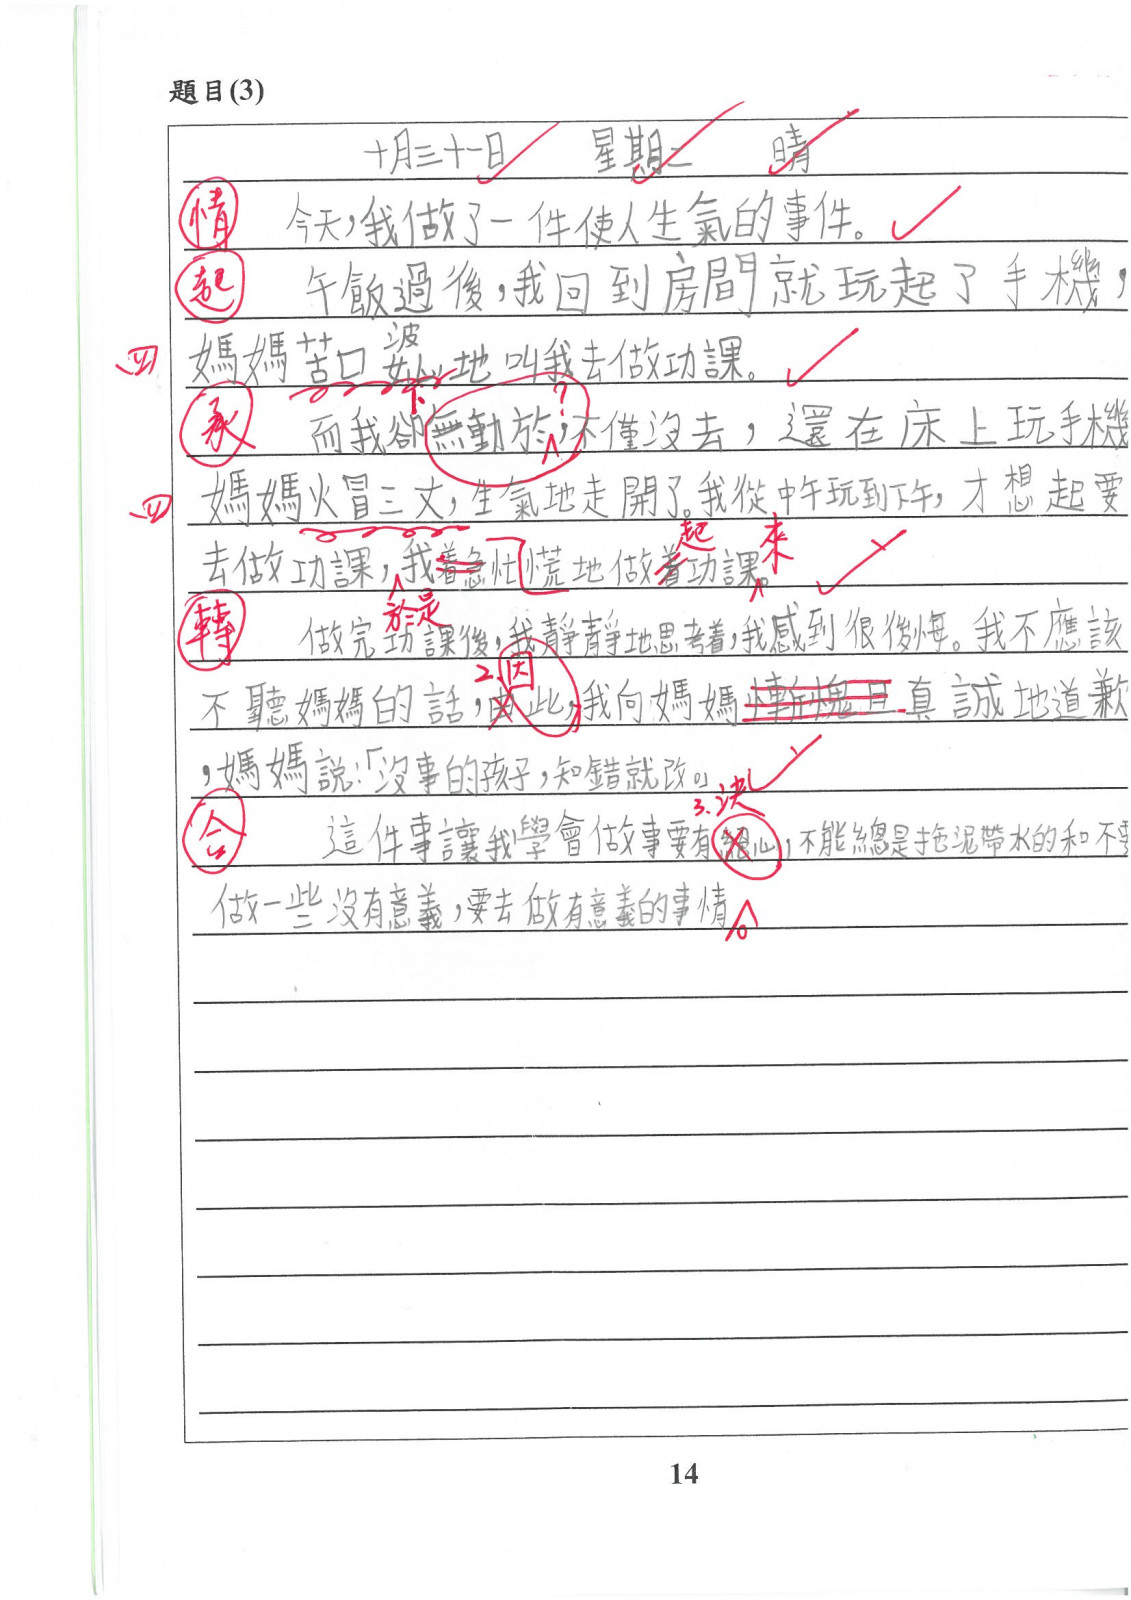 題目(3)
十月三十一日 星期二 晴
情 今天,我做了一件使人生氣的事件。
起 午飯過後,我回到房間就玩起了手機,
波
四 媽媽苦口婆心地叫我去做功課。
下 ?
承 而我卻無動於,不僅沒去,還在床上玩手機
四 媽媽火冒三丈,生氣地走開了。我從中午玩到下午,才想起要
起 來
去做功課,我着急忙慌地做着功課。
於是
轉 做完功課後,我靜靜地思考着,我感到很後悔。我不應該
2. 因
不聽媽媽的話,由此,我向媽媽慚愧且真誠地道歉
,媽媽說:「沒事的孩子,知錯就改。」
3. 決
合 這件事讓我學會做事要有心,不能總是拖泥帶水的和不要
做一些沒有意義,要去做有意義的事情
14